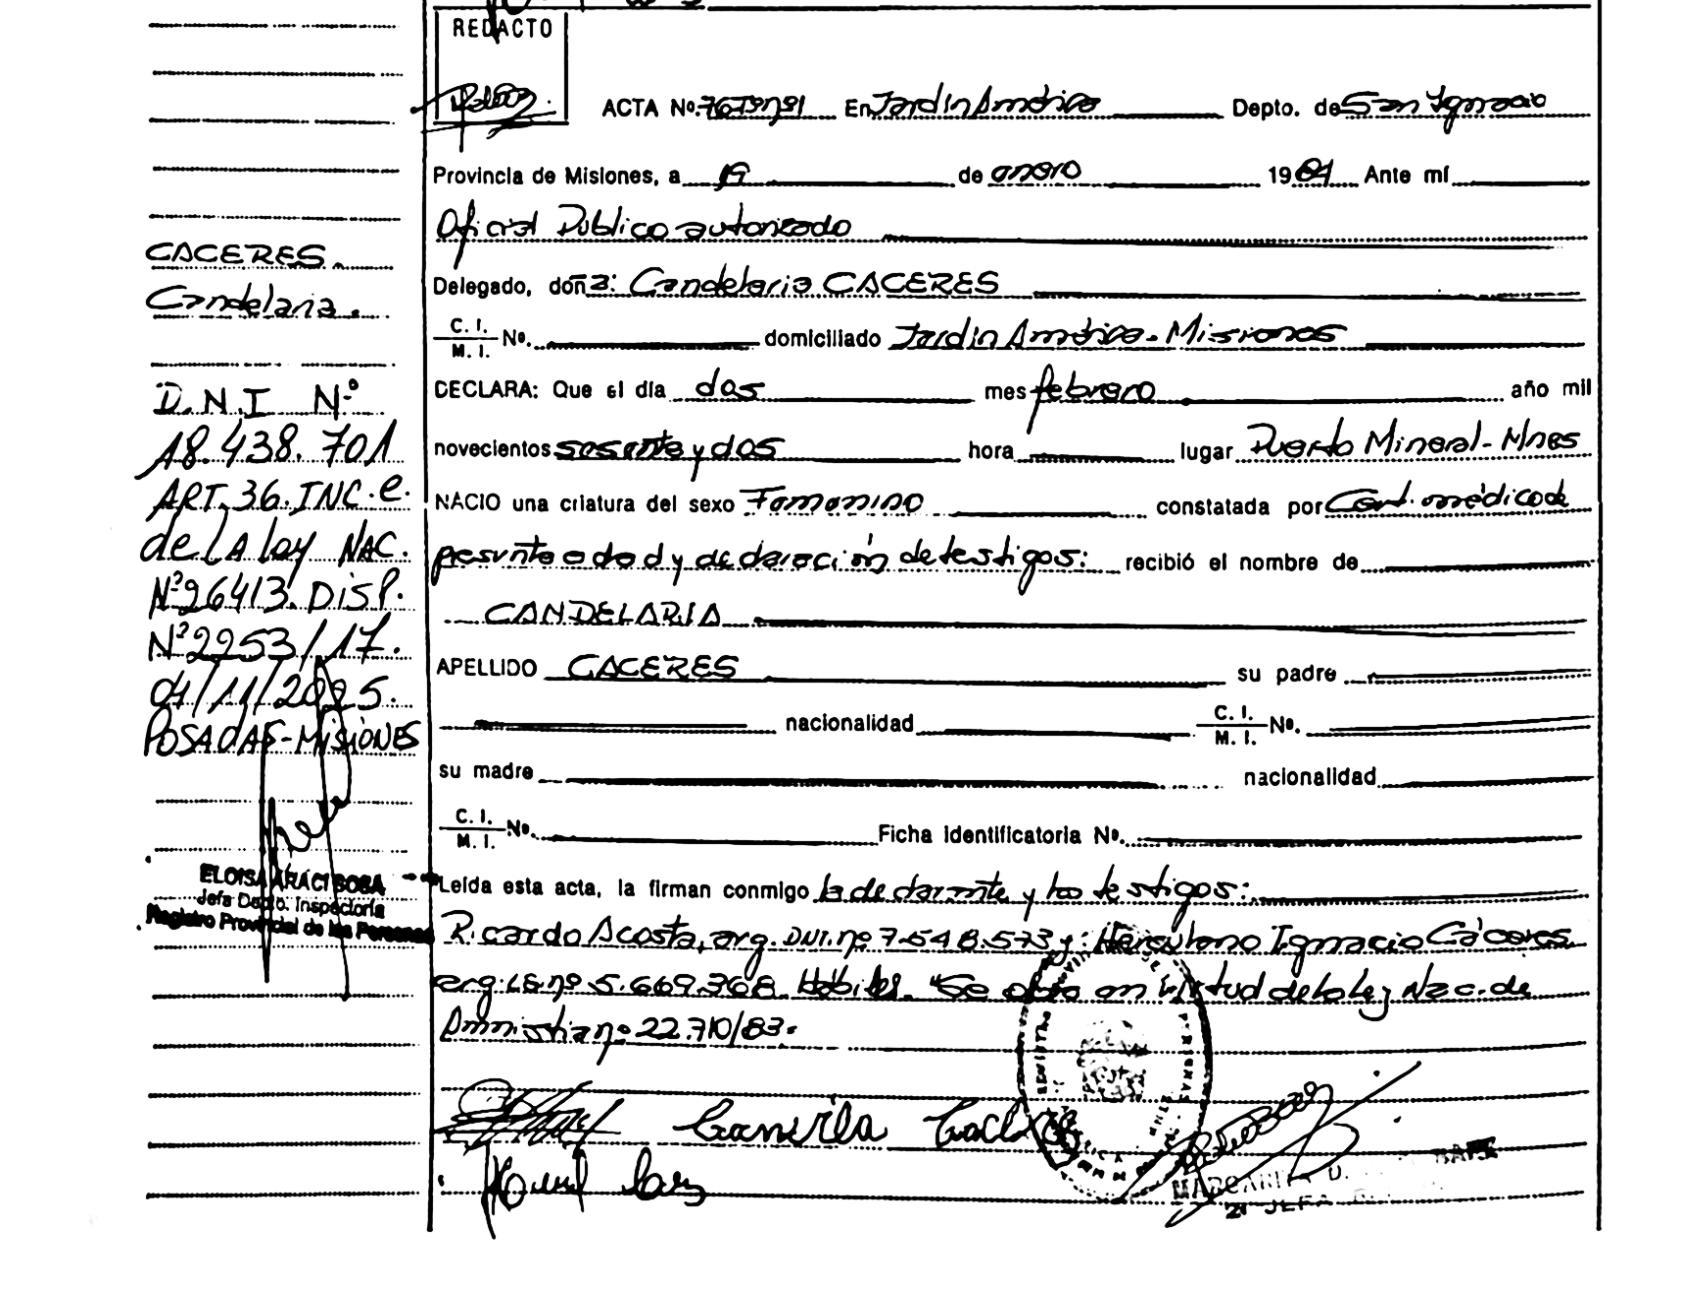 REDACTO
ACTA Nº En Jardin América Depto. de San Ignacio
Provincia de Misiones, a 19 de enero 1984 Ante mí
Oficial Público autorizado
Delegado, doña: Candelaria CACERES
C. I. M. I. Nº. domiciliado Jardin América - Misiones
DECLARA: Que el día dos mes febrero año mil
novecientos sesenta y dos hora lugar Puerto Mineral - Mnes
NACIO una criatura del sexo Femenino constatada por Cert. médico de
presunta edad y declaración de testigos: recibió el nombre de
CANDELARIA
APELLIDO CACERES su padre
nacionalidad C. I. M. I. Nº.
su madre nacionalidad
C. I. M. I. Nº. Ficha identificatoria Nº.
Leída esta acta, la firman conmigo la declarante y los testigos:
Ricardo Acosta, arg. DNI. nº 7.548.573 y: Herculano Ignacio Cáceres
arg. LE nº 5.669.368 Hábiles. Se en virtud de la Ley Nac. de
Amnistia nº 22.710/83.
CACERES.
Candelaria.
D.N.I Nº
18.438.701
ART. 36. INC. e.
de LA ley NAC.
Nº 26413. DISP.
Nº 2253/17.
04/11/2025.
POSADAS-MISIONES
ELOISA ARACI SOSA
Jefa Dpto. Inspectoria
Registro Provincial de las Personas